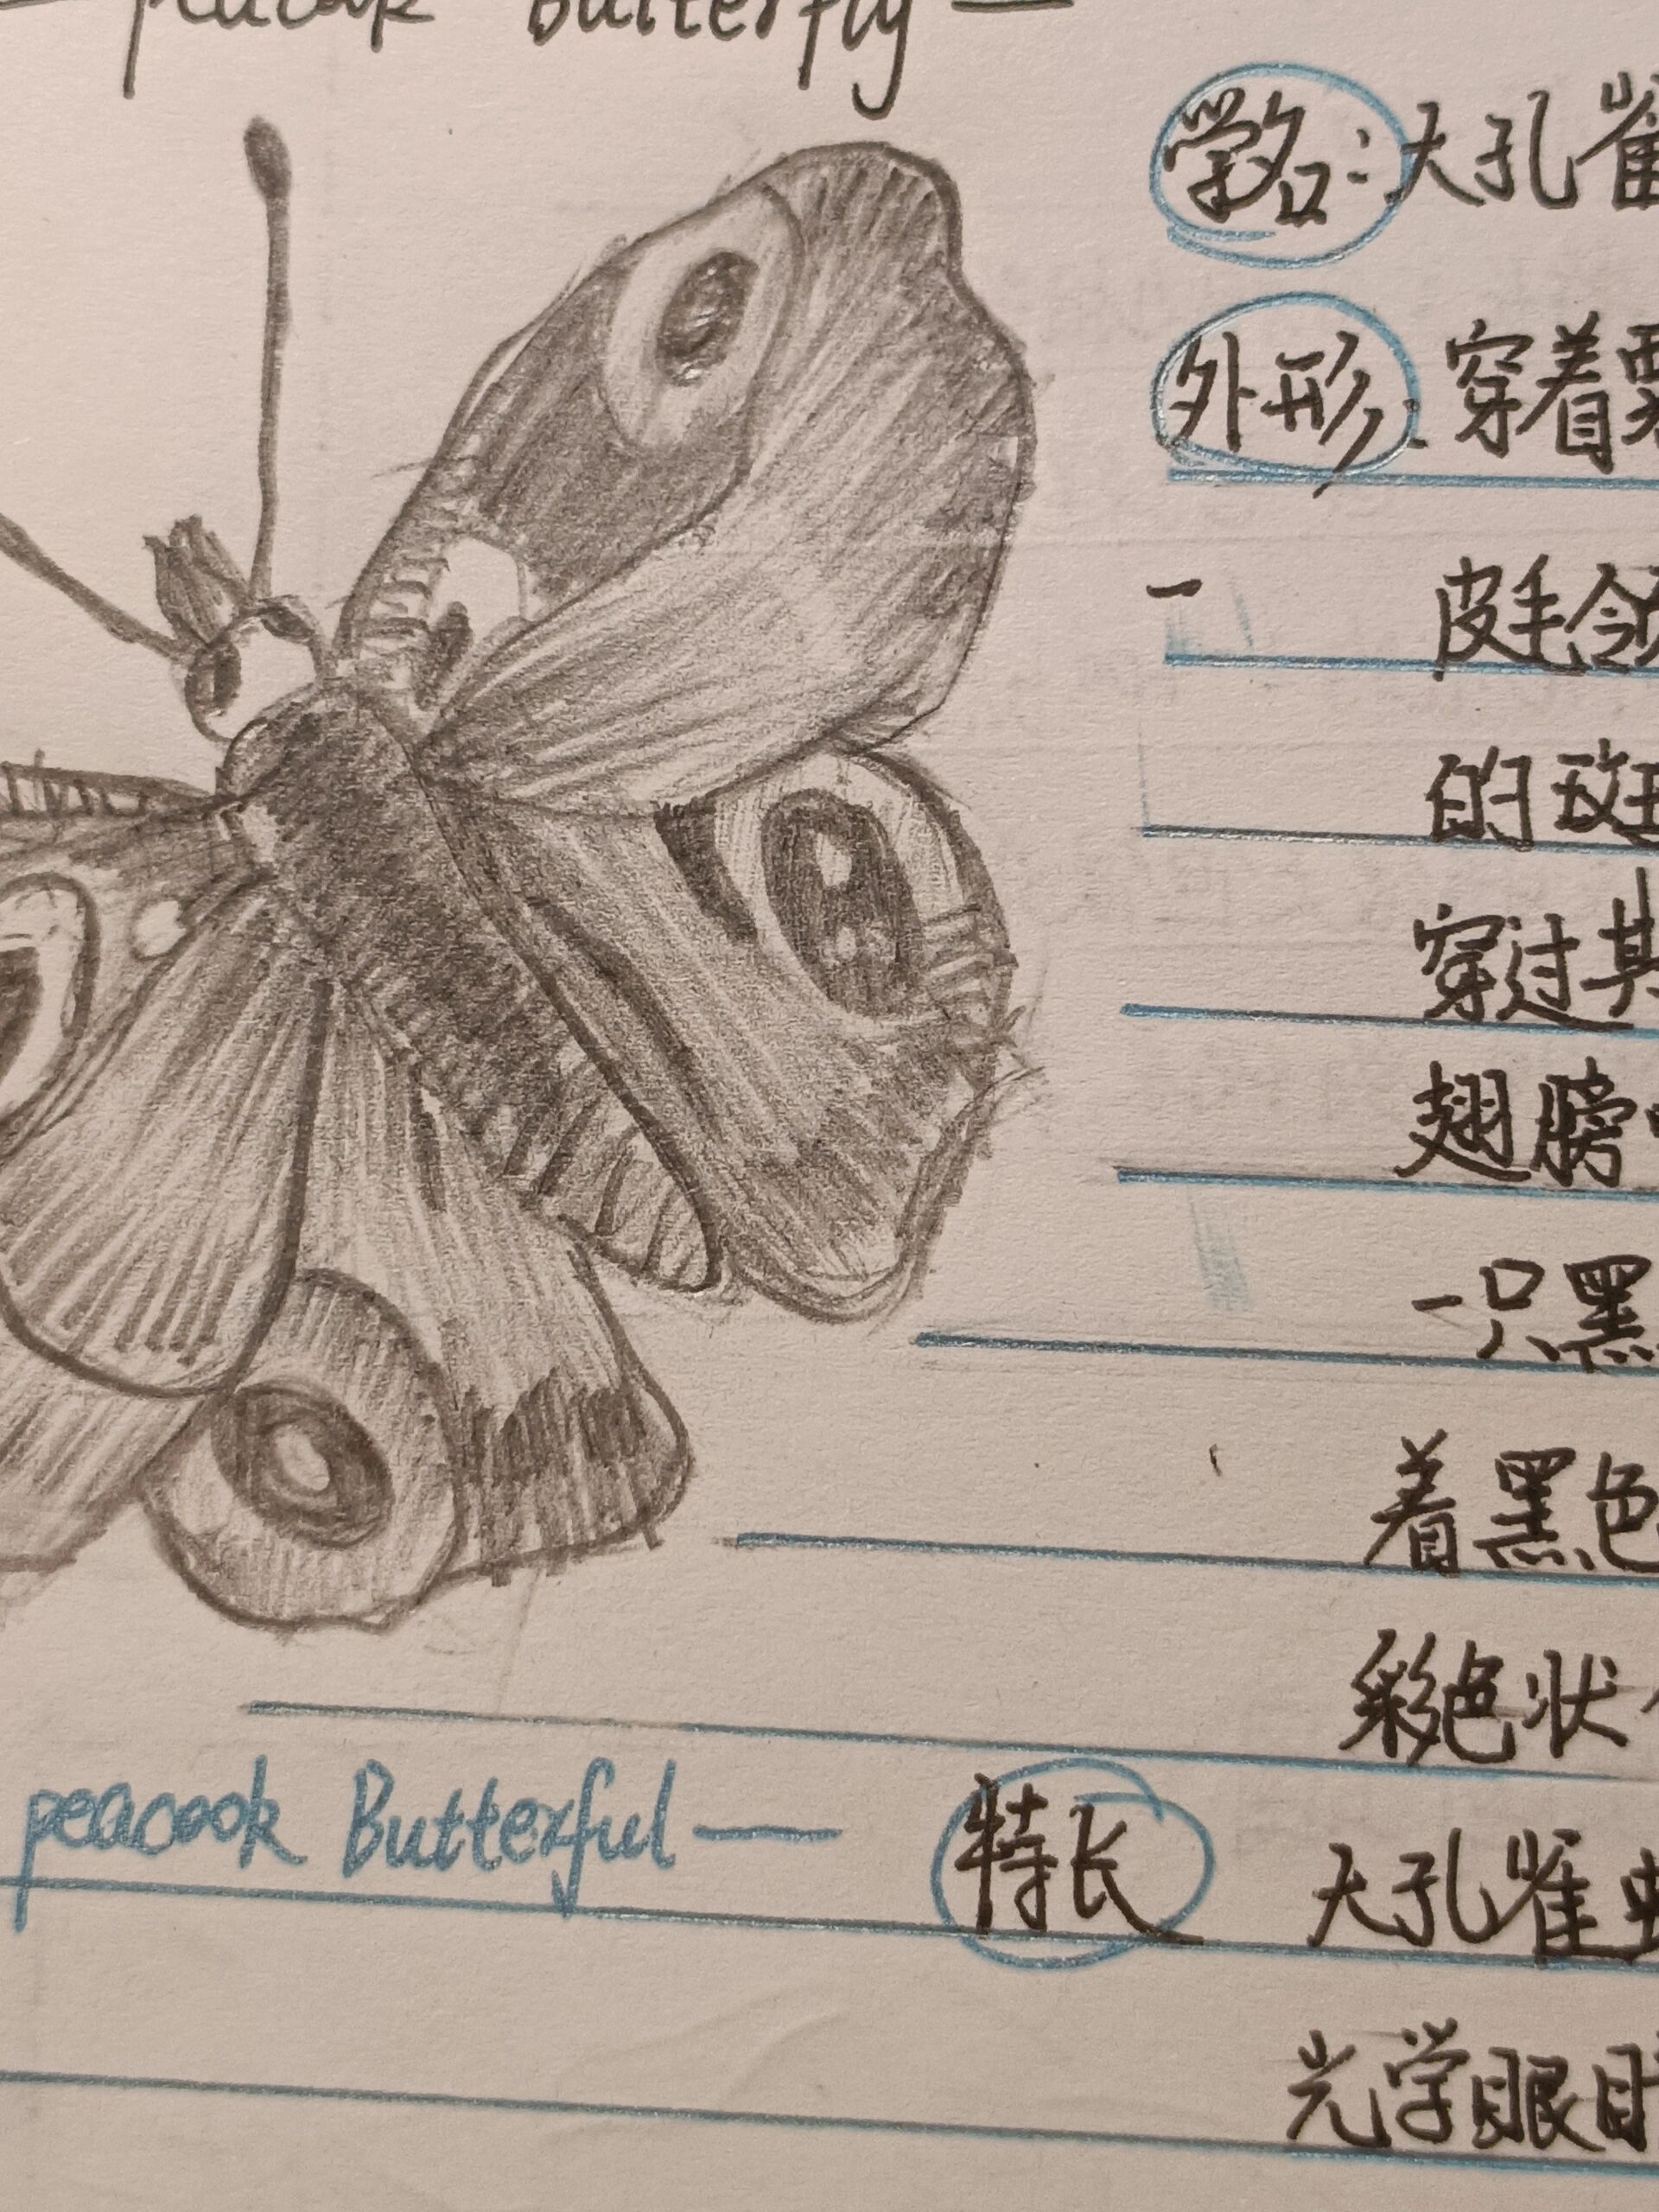 Butterfly —
学名：大孔雀
外形：穿着
皮毛
的斑
穿过其
翅膀
一只黑
着黑色
彩色状
peacook Butterful —
特长 大孔雀
光学眼